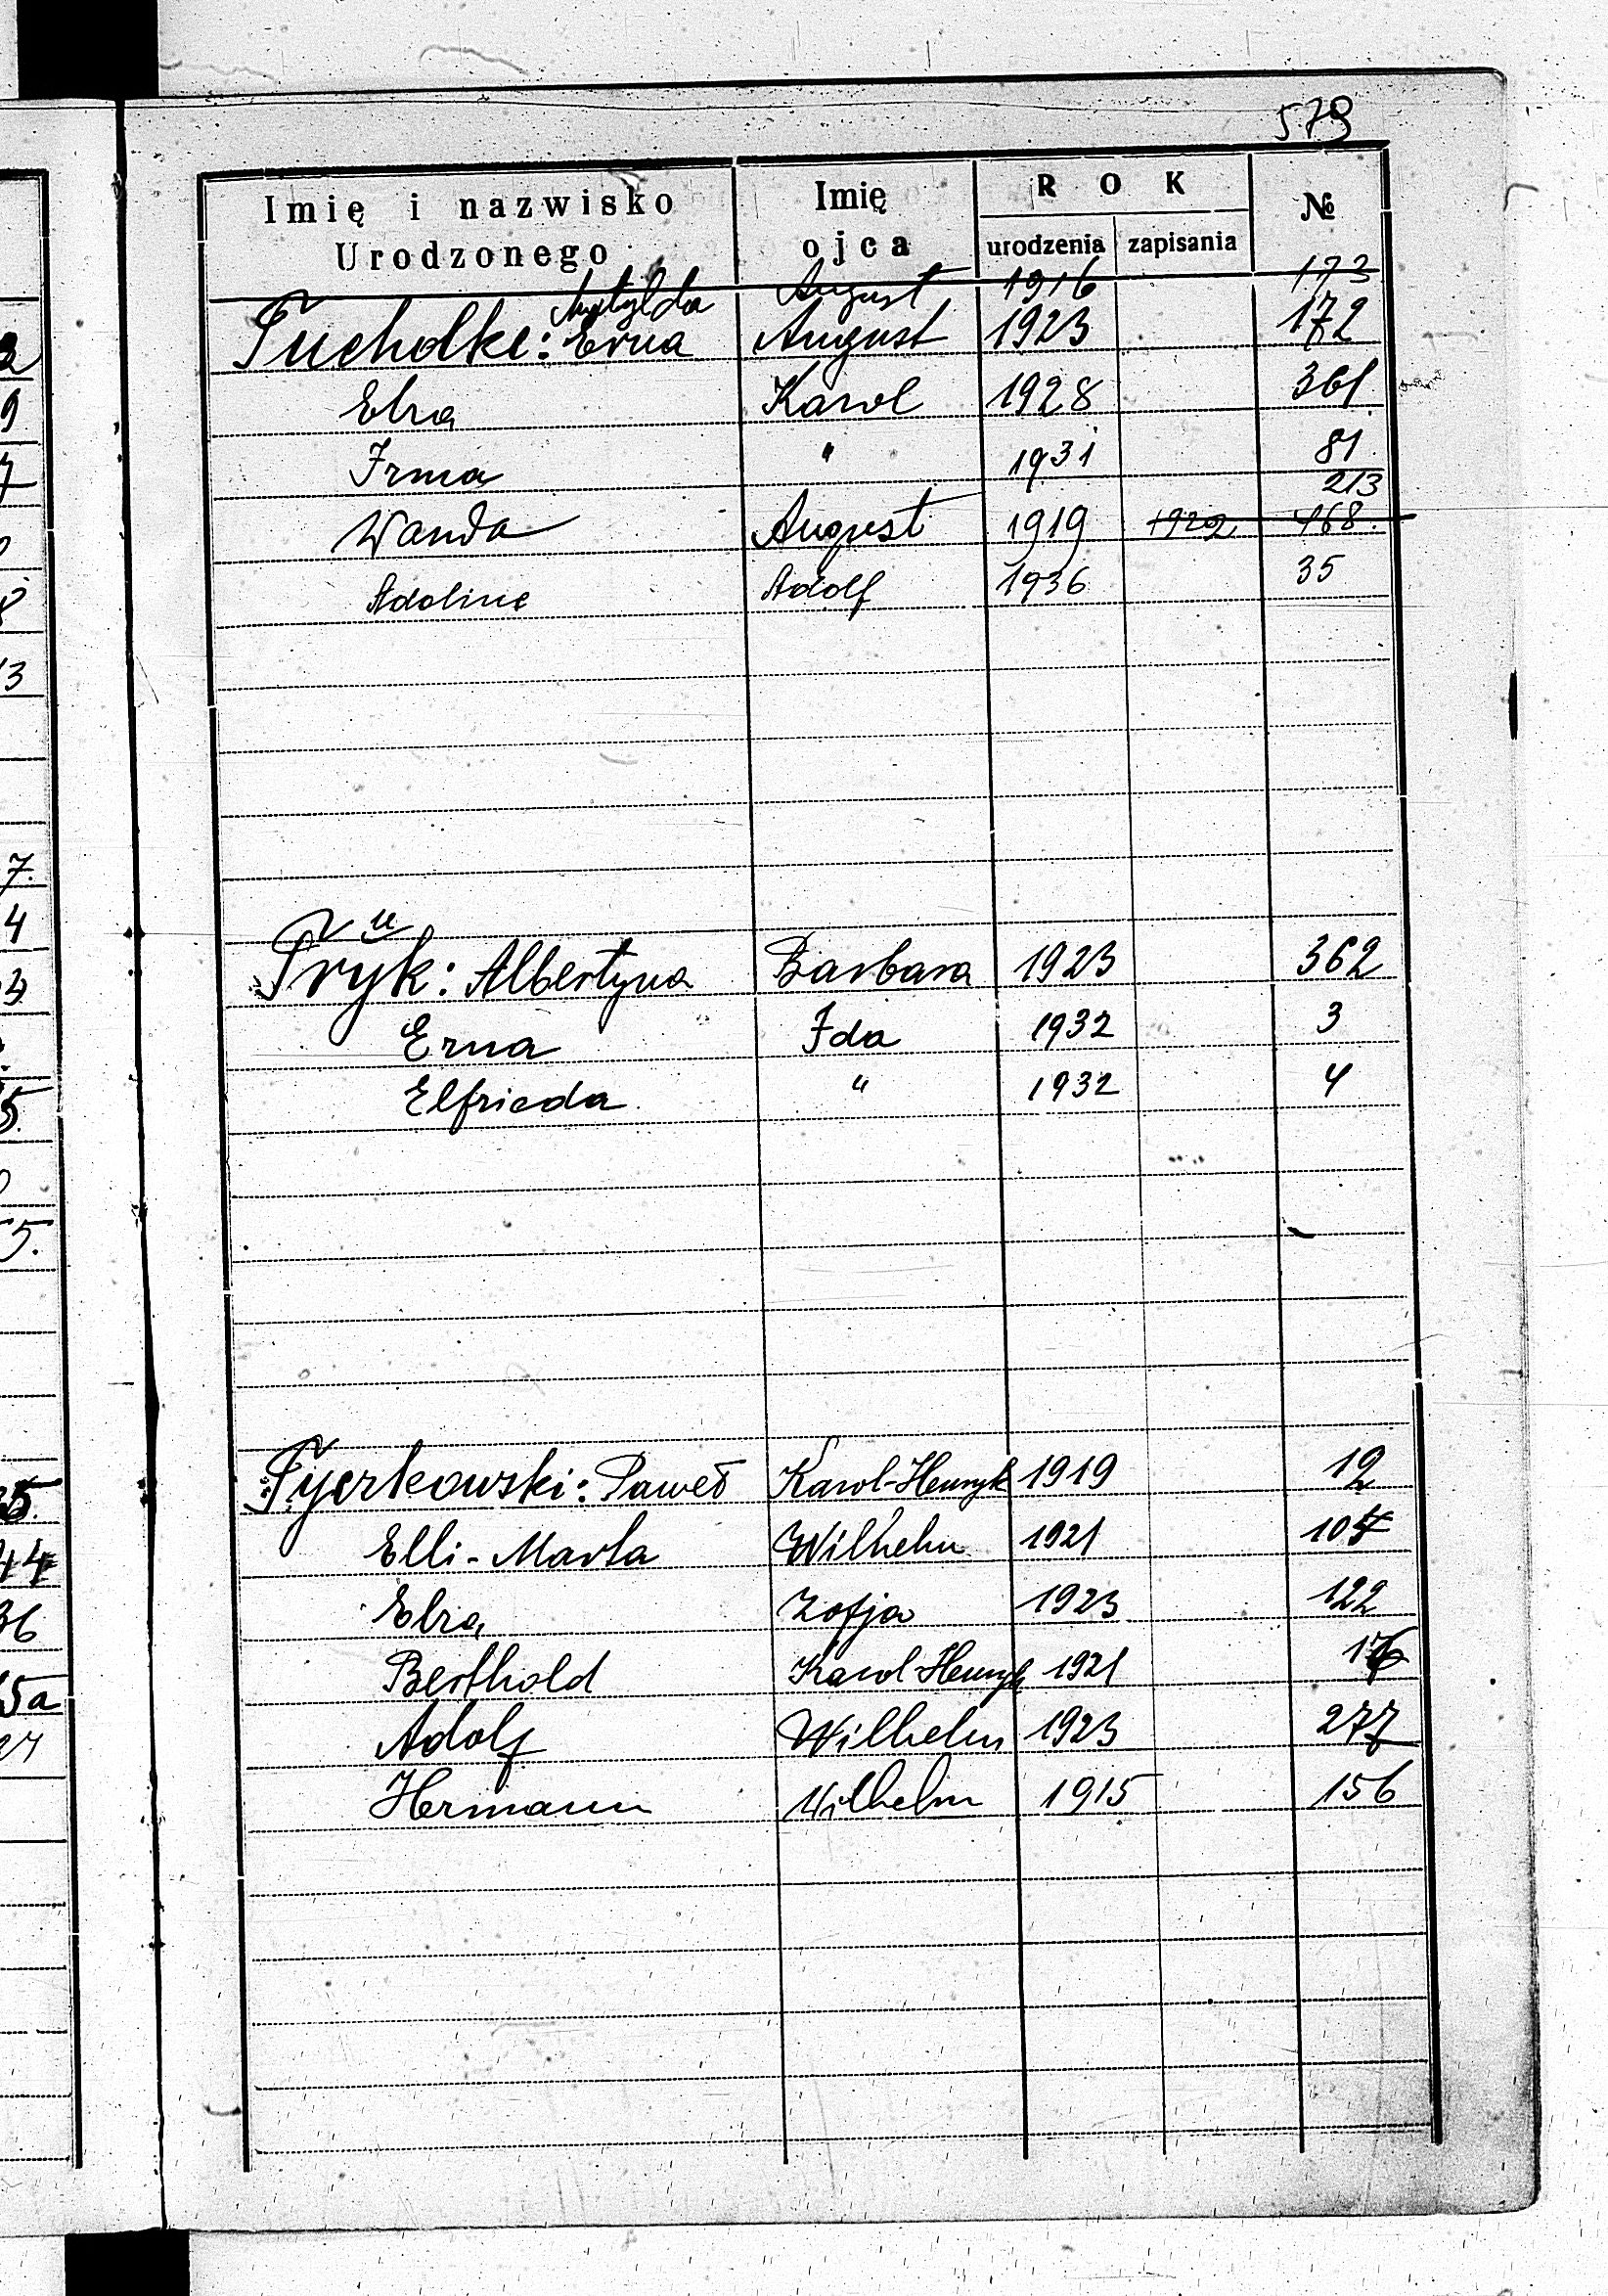 579
Imię i nazwisko Urodzonego Imię ojca ROK urodzenia zapisania №
Matylda August 1916 173
Tucholke: Erna August 1923 172
Elza Karol 1928 361.
Irma " 1931 81.
213
Wanda August 1919 1929 468.
Adoline Adolf 1936 35
u
Tryk: Albertyna Barbara 1923 362
Erna Ida 1932 3
Elfrieda " 1932 4
Tyerkowski: Paweł Karol-Henryk 1919 12
Elli-Marta Wilhelm 1921 104
Elza Zofja 1923 122
Berthold Karol-Henryk 1921
Adolf Wilhelm 1923 277
Hermann Wilhelm 1915 156